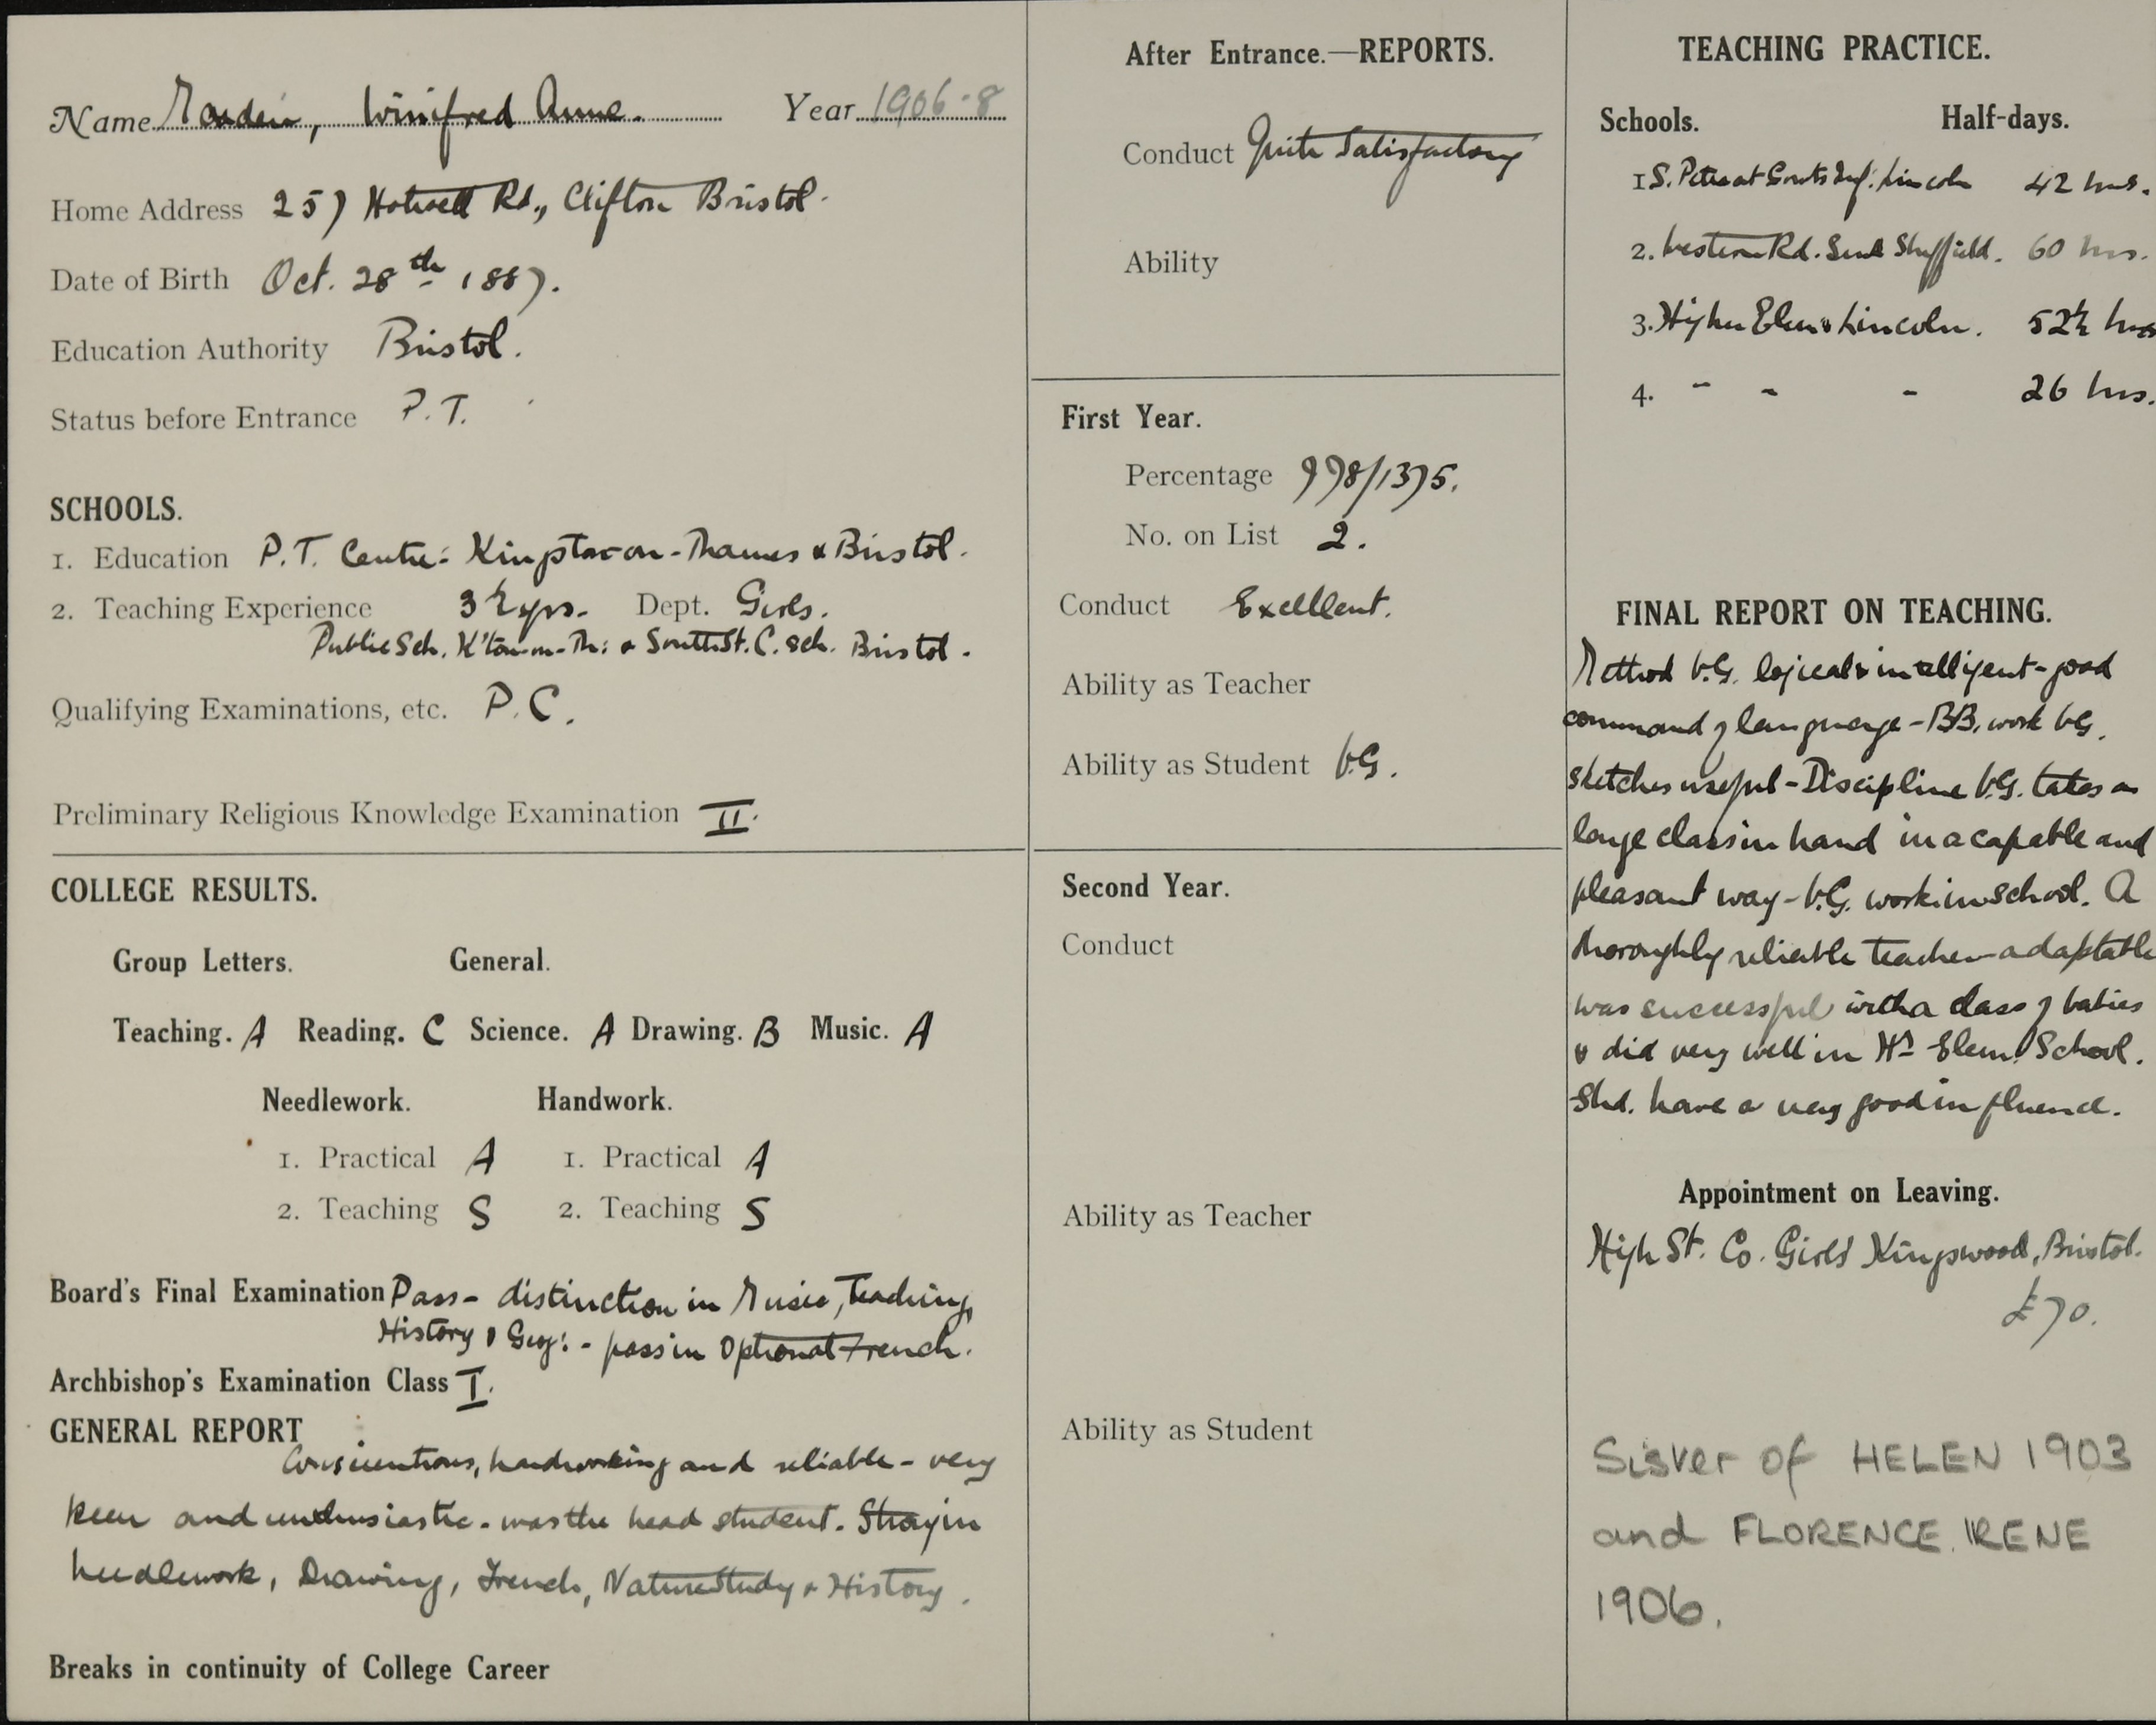 Name Marden, Winifred Anne. Year 1906-8
Home Address 257 Hotwell Rd., Clifton Bristol.
Date of Birth Oct. 28th 1887.
Education Authority Bristol.
Status before Entrance P.T.
SCHOOLS.
1. Education P.T. Centre: Kingston-on-Thames & Bristol.
2. Teaching Experience 3½ yrs. Dept. Girls.
Public Sch. K'ton-on-Th: & South St. C. Sch. Bristol.
Qualifying Examinations, etc. P.C.
Preliminary Religious Knowledge Examination II.
COLLEGE RESULTS.
Group Letters. General.
Teaching. A Reading. C Science. A Drawing. B Music. A
Needlework. Handwork.
1. Practical A 1. Practical A
2. Teaching S 2. Teaching S
Board's Final Examination Pass - distinction in Music, Teaching,
History & Geog: - pass in Optional French.
Archbishop's Examination Class I.
GENERAL REPORT
Conscientious, hardworking and reliable - very
keen and enthusiastic. was the head student. Strong in
Needlework, Drawing, French, Nature Study & History.
Breaks in continuity of College Career
After Entrance.—REPORTS.
Conduct Quite Satisfactory
Ability
First Year.
Percentage 998/1375.
No. on List 2.
Conduct Excellent.
Ability as Teacher
Ability as Student V.G.
Second Year.
Conduct
Ability as Teacher
Ability as Student
TEACHING PRACTICE.
Schools. Half-days.
1 S. Peter at Gowts Inf. Lincoln 42 hrs.
2. Western Rd. Sheffield. 60 hrs.
3. Higher Elem. Lincoln. 52½ hrs
4. - - - 26 hrs.
FINAL REPORT ON TEACHING.
Method V.G. logical & intelligent - good
command of language - BB. work VG.
sketches useful - Discipline V.G. takes a
large class in hand in a capable and
pleasant way - V.G. work in school. A
thoroughly reliable teacher - adaptable
was successful with a class of babies
& did very well in Hr Elem. School.
Shd. have a very good influence.
Appointment on Leaving.
High St. Co. Girls Kingswood, Bristol.
£70.
Sister of HELEN 1903
and FLORENCE IRENE
1906.